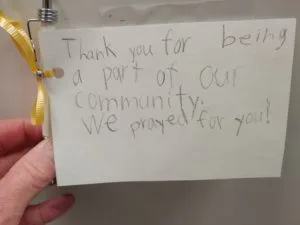 Thank you for being
a part of our
community.
We prayed for you!